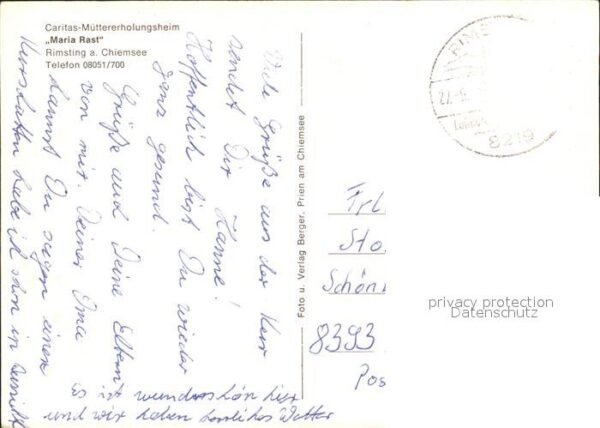 Caritas-Müttererholungsheim
„Maria Rast"
Rimsting a. Chiemsee
Telefon 08051/700
Viele Grüße aus der Kur
sendet Dir Hanne!
Hoffentlich bist Du wieder
ganz gesund.
Grüße auch Deine Eltern
von mir. Deiner Oma
kannst Du sagen einen
Kurschatten habe ich schon in
Es ist wunderschön hier
und wir haben herrliches Wetter
Foto u. Verlag Berger, Prien am Chiemsee
RIMS
8219
Frl
Sto
Schön
8393
Pos
privacy protection
Datenschutz